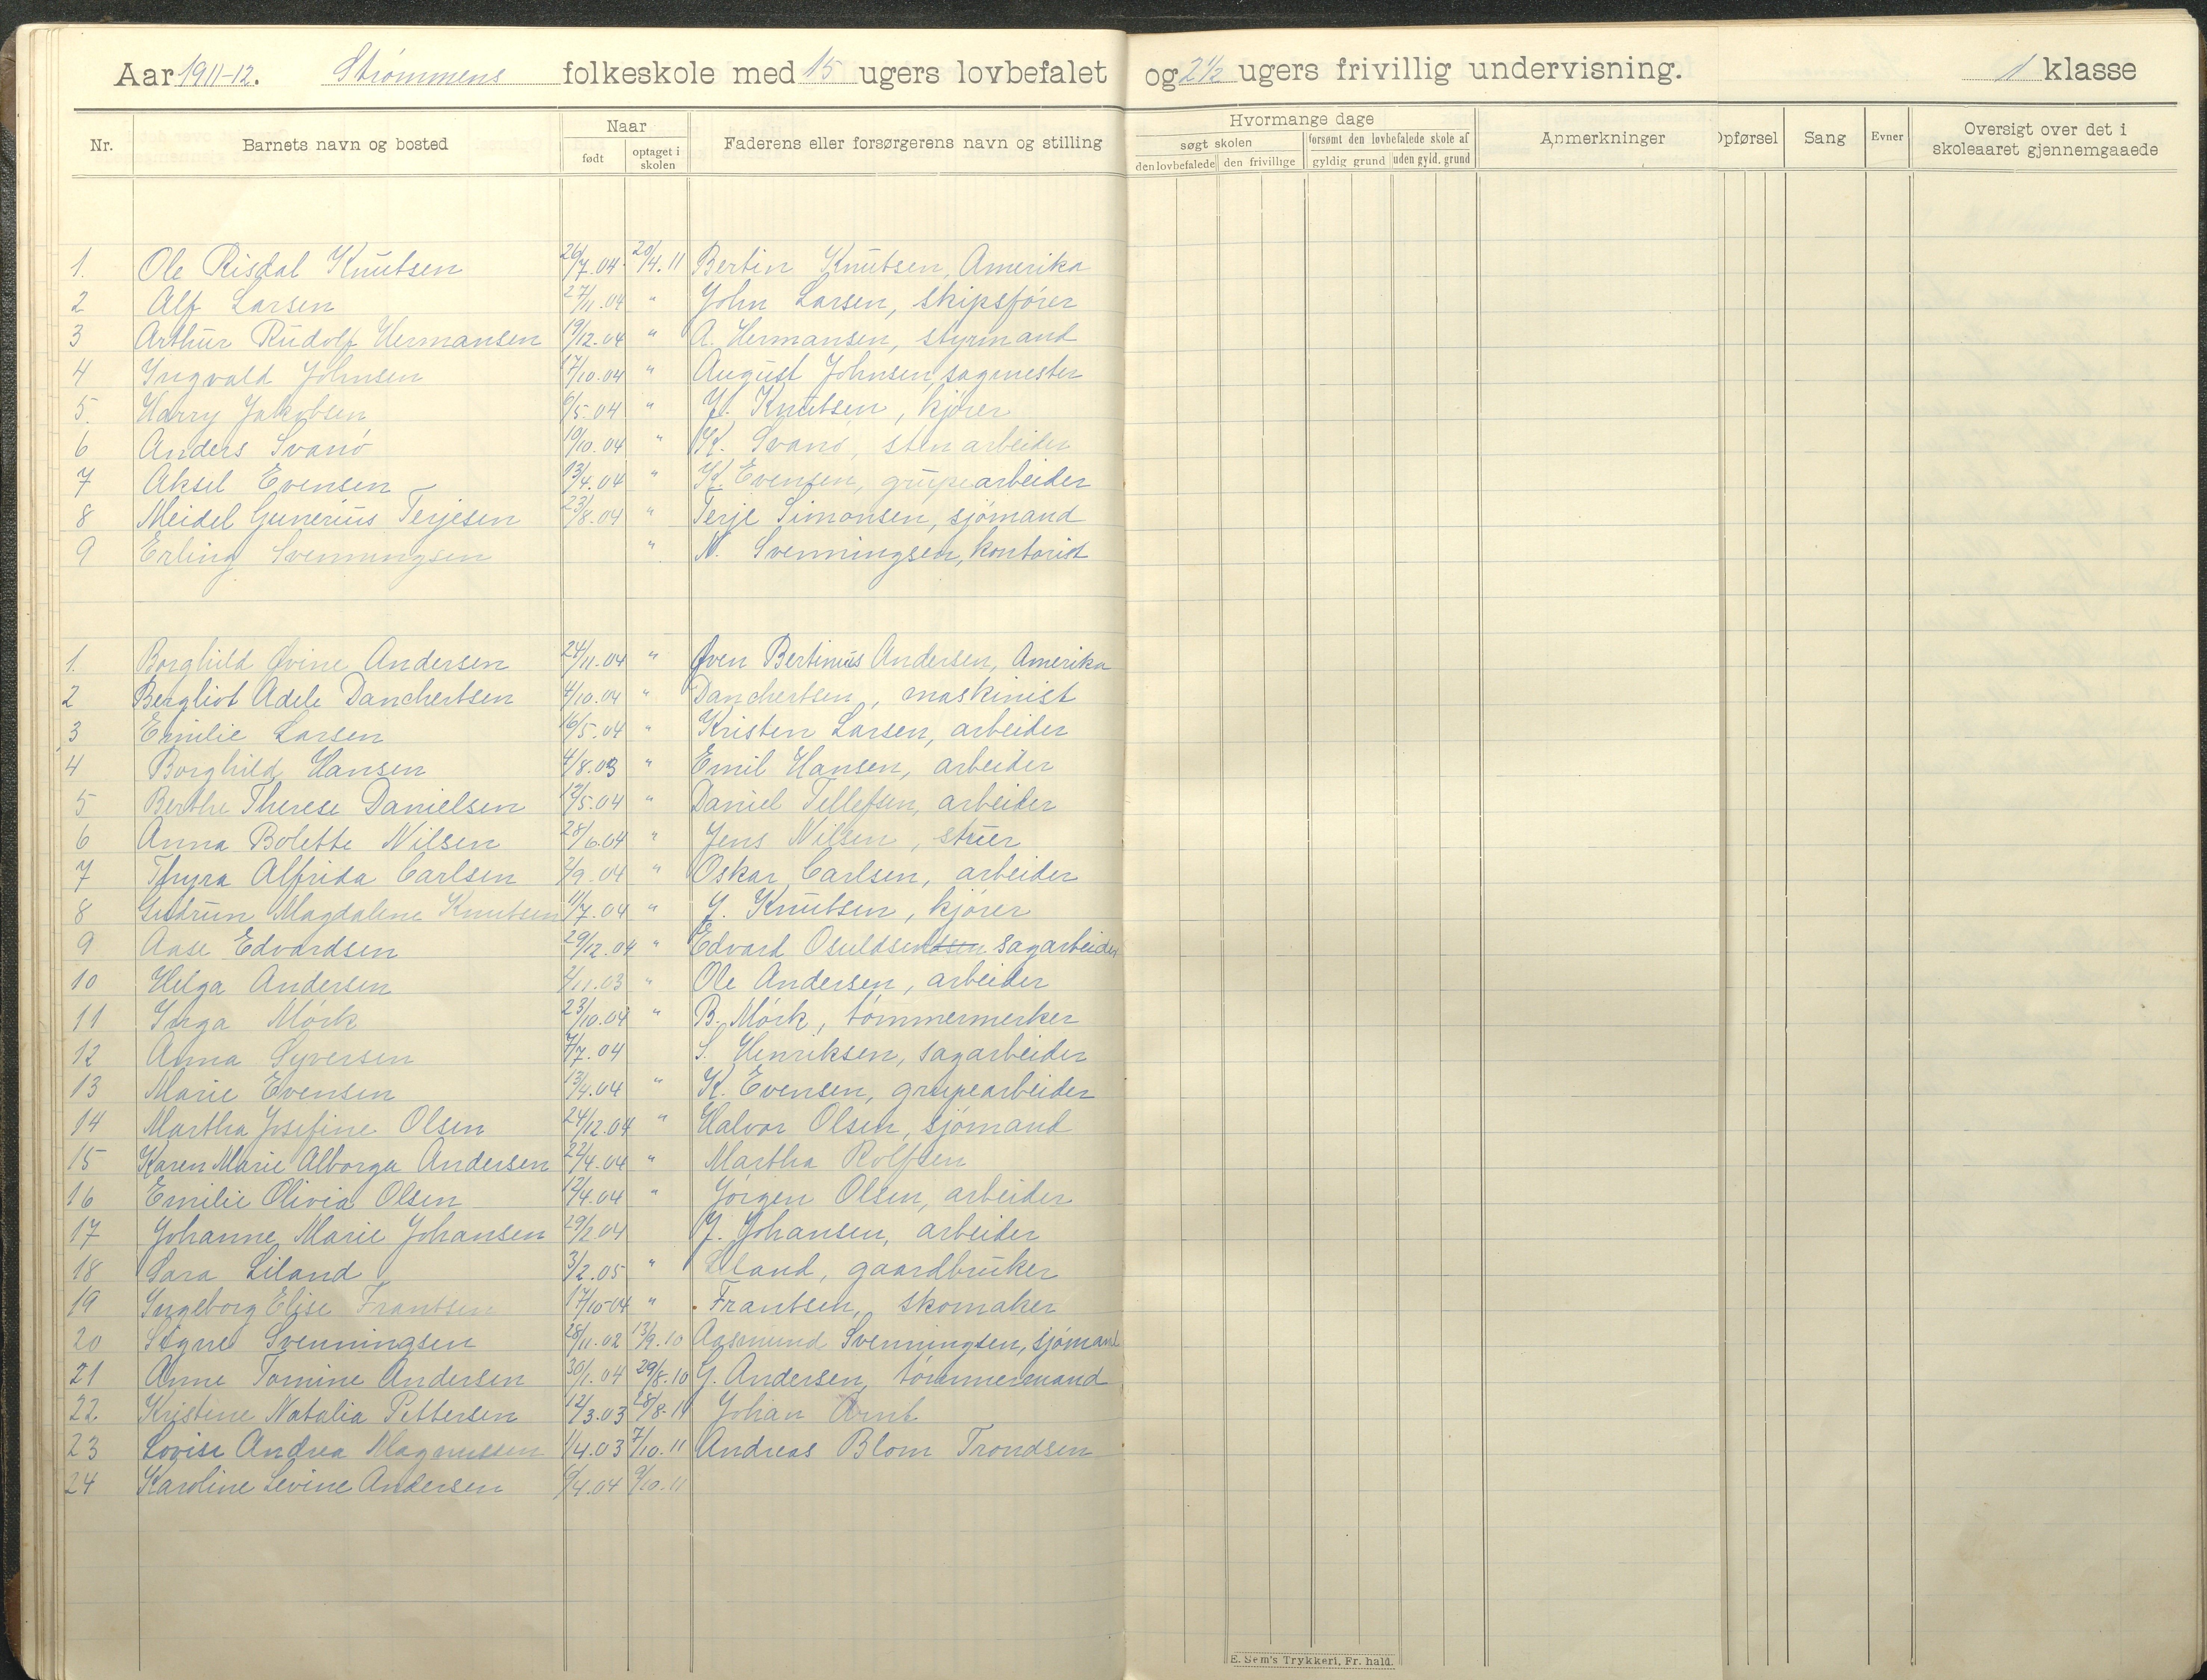 Aar 1911-12. Strømmens folkeskole med 15 ugers lovbefalet og 2½ ugers frivillig undervisning. 1 klasse
Nr. Barnets navn og bosted Naar født optaget i skolen Faderens eller forsørgerens navn og stilling Hvormange dage søgt skolen den lovbefalede den frivillige forsømt den lovbefalede skole af gyldig grund uden gyld. grund Anmerkninger Opførsel Sang Evner Oversigt over det i skoleaaret gjennemgaaede
1. Ole Risdal Knutsen 26/7.04. 20/4.11 Bertin Knutsen, Amerika
2 Alf Larsen 27/11.04 " John Larsen, skipsfører
3 Arthur Rudolf Hermansen 19/12.04 " A. Hermansen, styrmand
4 Ingvald Johnsen 17/10.04 " August Johnsen, sagmester
5. Harry Jakobsen 6/5.04 " Knutsen, kjører
6 Anders Svanø 19/10.04 " K. Svanø, stenarbeider
7 Aksel Evensen 13/4.04 " K. Evensen, grupearbeider
8 Meidel Gunerius Terjesen 23/8.04 " Terje Simonsen, sjømand
9 Erling Svenningsen " N. Svenningsen, kontorist
1. Borghild Øvine Andersen 24/11.04 " Øven Bertinius Andersen, Amerika
2 Bergliot Adele Danchertsen 4/10.04 " Danchertsen, maskinist
3 Emilie Larsen 16/5.04 " Kristen Larsen, arbeider
4 Borghild Hansen 4/8.03 " Emil Hansen, arbeider
5 Berthe Therese Danielsen 12/5.04 " Daniel Tellefsen, arbeider
6 Anna Bolette Nilsen 28/6.04 " Jens Nilsen, stuer
7 Thyra Alfrida Carlsen 2/9.04 " Oskar Carlsen, arbeider
8 Gudrun Magdalene Knutsen 11/7.04 " J. Knutsen, kjører
9 Aase Edvardsen 29/12.04 " Edvard Osuldsen sagarbeider
10 Helga Andersen 2/11.03 " Ole Andersen, arbeider
11 Inga Mörk 23/10.04 " B. Mörk, tømmermerker
12 Anna Syversen 7/7.04 S. Henriksen, sagarbeider
13 Marie Evensen 13/4.04 " K. Evensen, grupearbeider
14 Martha Josefine Olsen 24/12.04 " Halvor Olsen, sjømand
15 Karen Marie Alborga Andersen 22/4.04 " Martha Rolfsen
16 Emilie Olivia Olsen 12/4.04 " Jörgen Olsen, arbeider
17 Johanne Marie Johansen 29/2.04 J. Johansen, arbeider
18 Sara Liland 3/2.05 " Liland, gaardbruker
19 Ingeborg Elise Frantsen 17/10-04 " Frantsen, skomaker
20 Signe Svenningsen 28/11.02 13/9.10 Aasmund Svenningsen, sjømand
21 Anne Tomine Andersen 30/1.04 29/8.10 G. Andersen, tømmermand
22. Kristine Natalia Pettersen 12/3.03 28/8.11 Johan Arnt
23 Lovise Andrea Magnussen 1/4.03 7/10.11 Andreas Blom Trondsen
24 Karoline Levine Andersen 6/4.04 9/10.11
E. Sem's Trykkeri, Fr. hald.